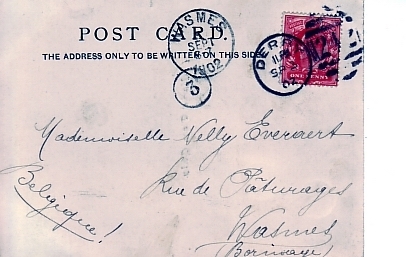 POST CARD.
THE ADDRESS ONLY TO BE WRITTEN ON THIS SIDE
WASMES
SEPT
1902
3
DERBY
ONE PENNY
Mademoiselle Nelly Everaert
Rue de Pâturages
Wasmes
(Borinage)
Belgique!